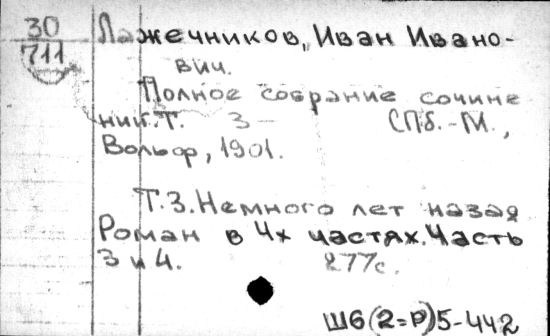 30
711
Лажечников, Иван Ивано-
вич.
Полное собрание сочине
ний. Т. 3 –
СПб.-М.,
Вольф, 1901.
Т.3. Немного лет назад
Роман в 4х частях. Часть
3 и 4. 277с.
Ш6(2=Р)5-442